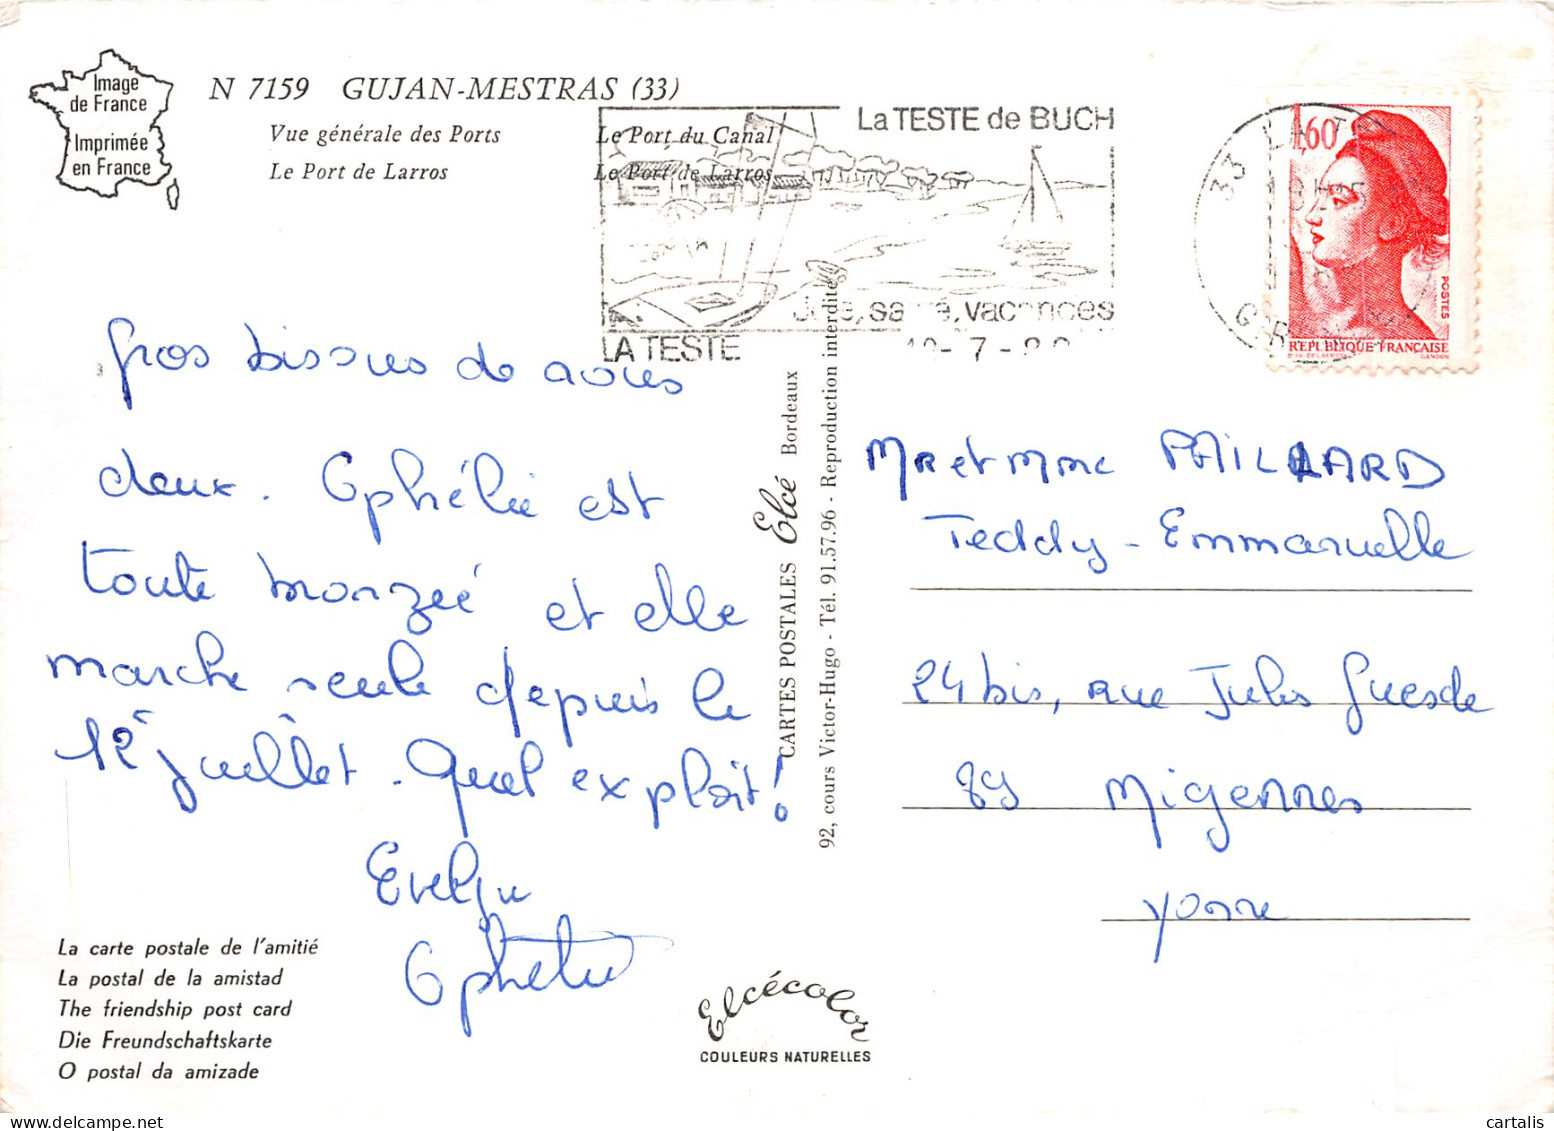 Image
de France
Imprimée
en France
N 7159 GUJAN-MESTRAS (33)
Vue générale des Ports
Le Port de Larros
Le Port du Canal
Le Port de Larros
La TESTE de BUCH
vacances
LA TESTE
7
33 LA TE
1,60
POSTES
REPUBLIQUE FRANÇAISE
GANDON
Gros bisous de nous
deux. Ophélie est
toute bronzée et elle
marche seule depuis le
12 juillet. Quel exploit !
Evelyn
Ophélie
Mr et Mme PAILLARD
Teddy - Emmanuelle
24 bis, rue Jules Guesde
89 Migennes
Yonne
CARTES POSTALES Elcé Bordeaux
92, cours Victor-Hugo - Tél. 91.57.96 - Reproduction interdite
La carte postale de l'amitié
La postal de la amistad
The friendship post card
Die Freundschaftskarte
O postal da amizade
Elcécolor
COULEURS NATURELLES
cartalis